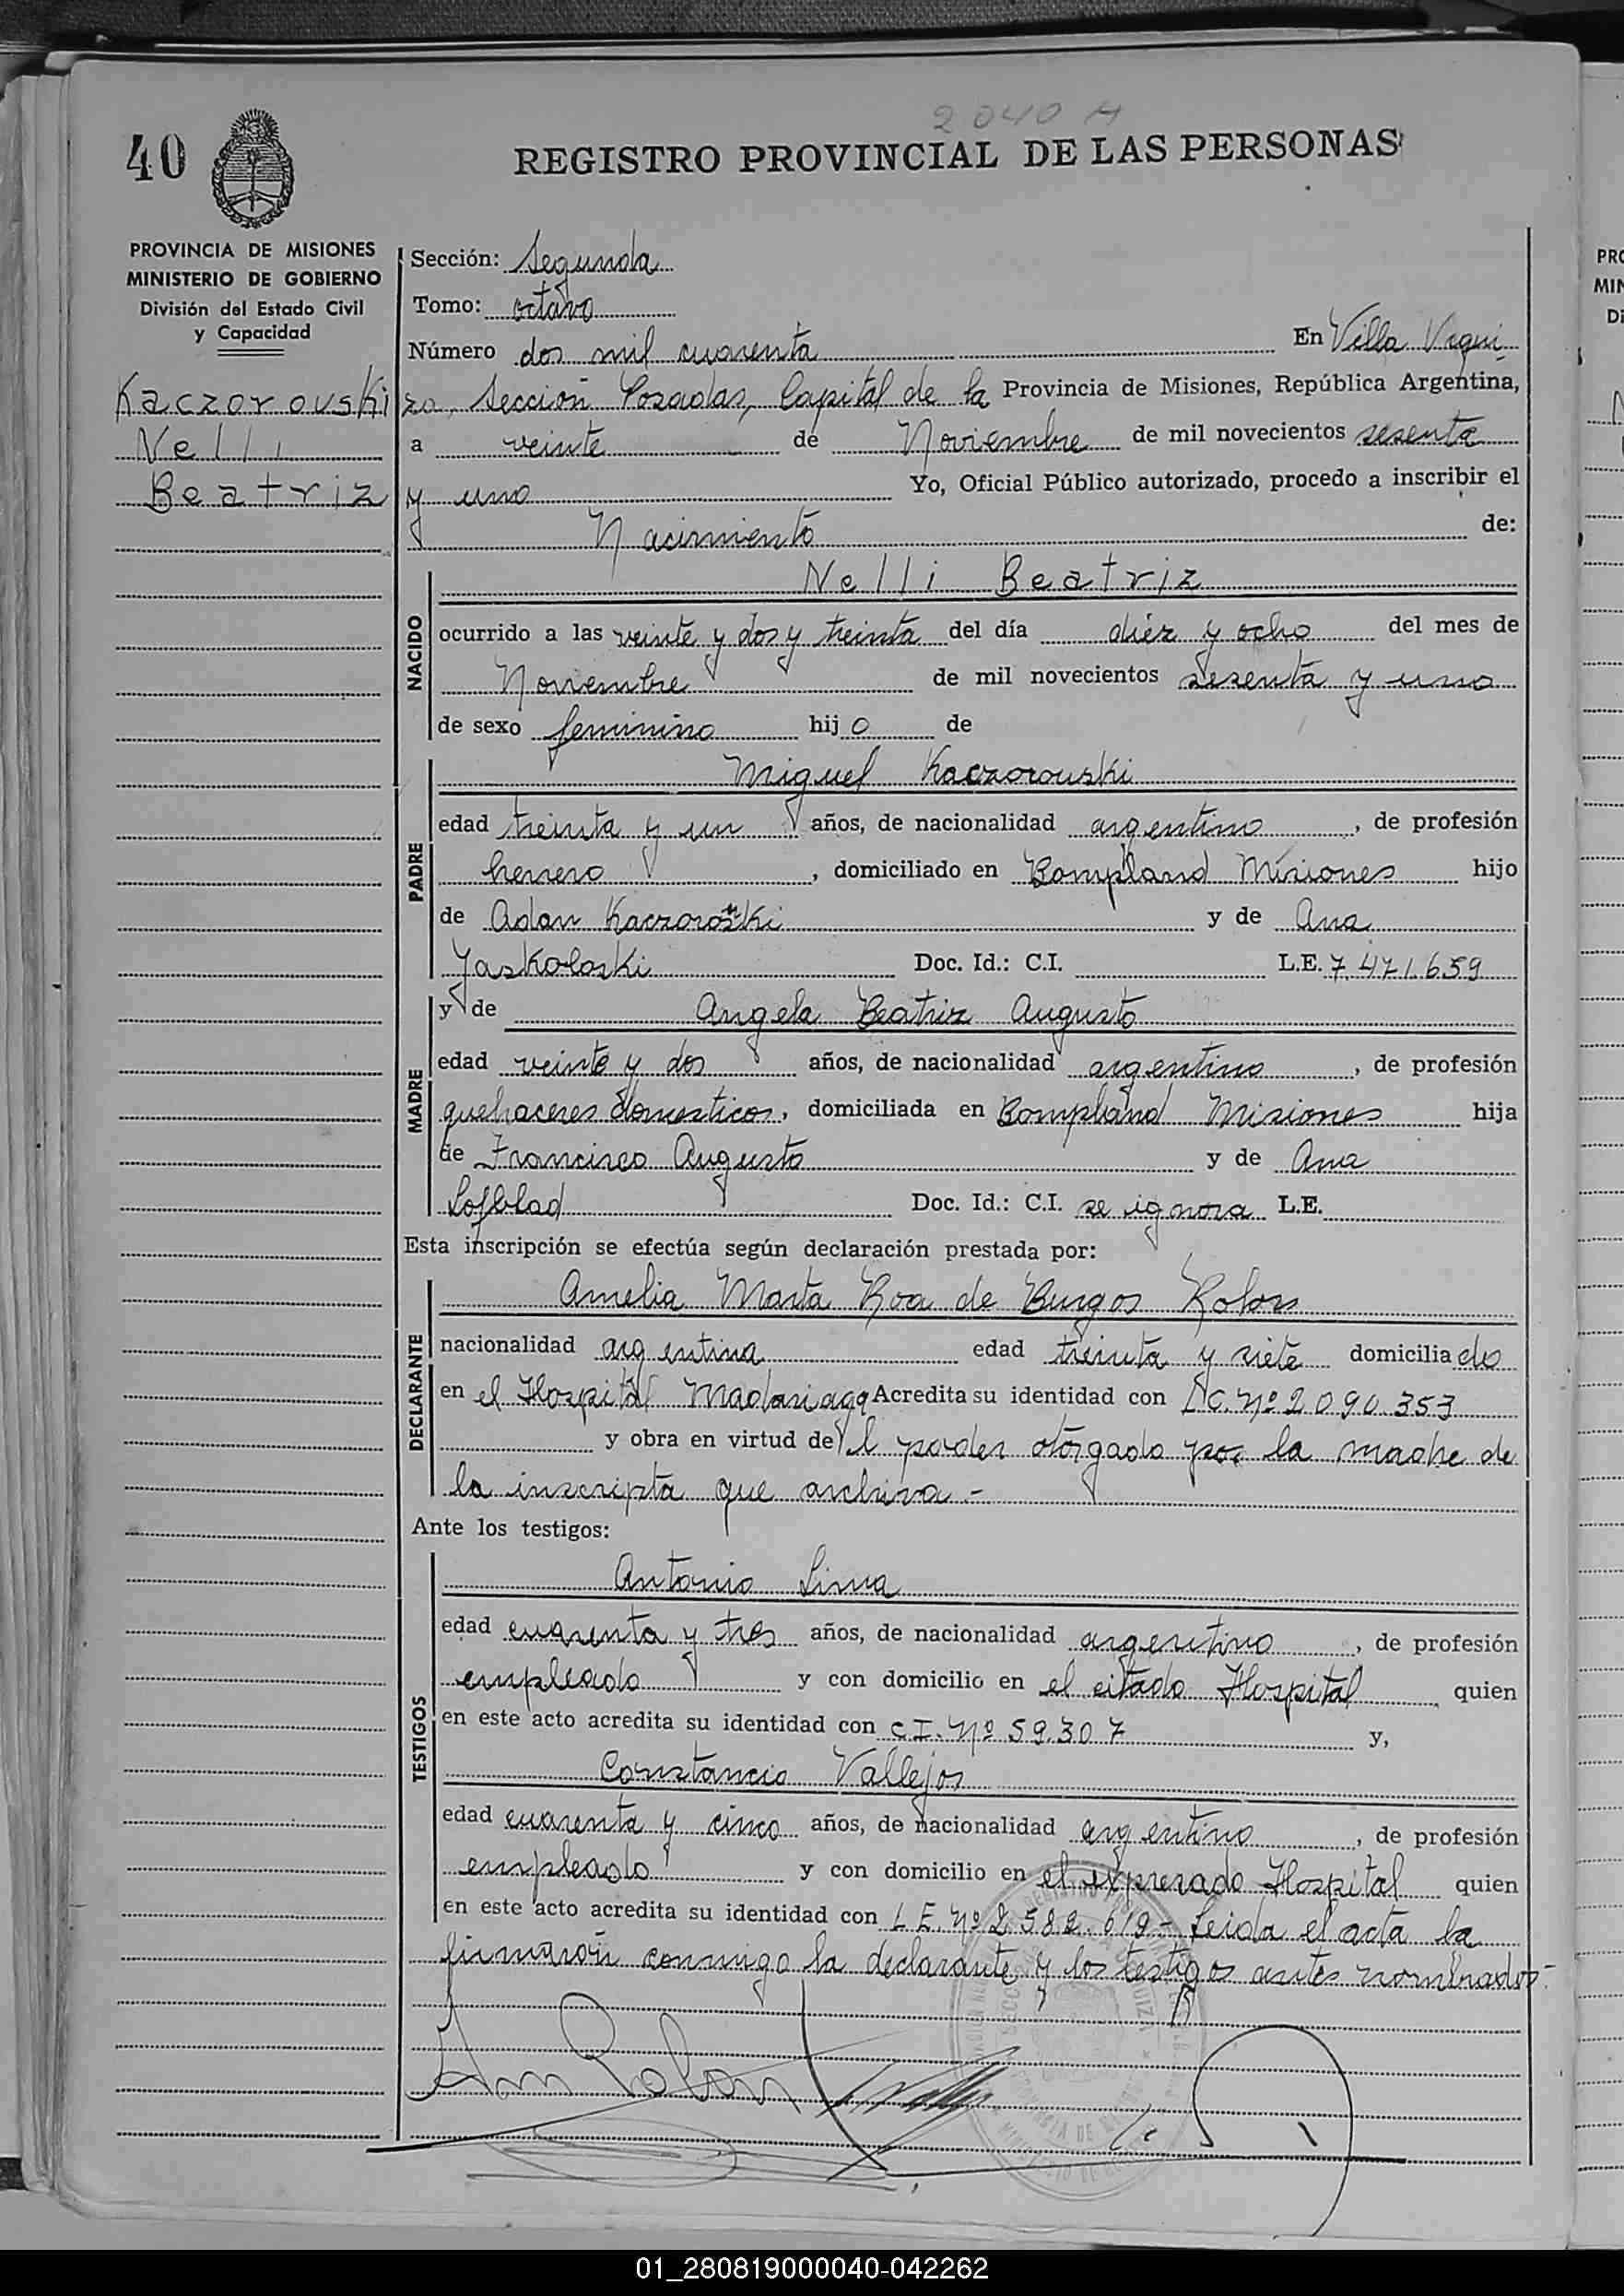 2040 A
40
REGISTRO PROVINCIAL DE LAS PERSONAS
PROVINCIA DE MISIONES
MINISTERIO DE GOBIERNO
División del Estado Civil
y Capacidad
Kaczorouski
Nelli
Beatriz
Sección: Segunda
Tomo: octavo
Número dos mil cuarenta En Villa Urqui
za, Sección Posadas, Capital de la Provincia de Misiones, República Argentina,
a veinte de Noviembre de mil novecientos sesenta
y uno Yo, Oficial Público autorizado, procedo a inscribir el
Nacimiento de:
NACIDO
Nelli Beatriz
ocurrido a las veinte y dos y treinta del día diez y ocho del mes de
Noviembre de mil novecientos sesenta y uno
de sexo feminino hijo de
PADRE
Miguel Kaczorouski
edad treinta y un años, de nacionalidad argentino, de profesión
herrero, domiciliado en Bompland Misiones hijo
de Adan Kaczorouski y de Ana
Jaskoloski Doc. Id.: C.I. L.E. 7.471.659
MADRE
y de Angela Beatriz Augusto
edad veinte y dos años, de nacionalidad argentino, de profesión
quehaceres domesticos, domiciliada en Bompland Misiones hija
de Francisco Augusto y de Ana
Lofblad Doc. Id.: C.I. se ignora L.E.
Esta inscripción se efectúa según declaración prestada por:
DECLARANTE
Amelia Marta Roa de Burgos Rolon
nacionalidad argentina edad treinta y siete domiciliado
en el Hospital Madariaga Acredita su identidad con LC. Nº 2.090.353
y obra en virtud del poder otorgado por la madre de
la inscripta que archivo.-
Ante los testigos:
TESTIGOS
Antonio Lima
edad cuarenta y tres años, de nacionalidad argentino, de profesión
empleado y con domicilio en el citado Hospital quien
en este acto acredita su identidad con C.I. Nº 59.307 y,
Constancio Vallejos
edad cuarenta y cinco años, de nacionalidad argentino, de profesión
empleado y con domicilio en el expresado Hospital quien
en este acto acredita su identidad con L.E. Nº 2.582.619.- Leida el acta la
firmaron conmigo la declarante y los testigos antes nombrados.-
Am Rolon
01_280819000040-042262